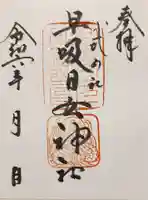 奉拝
早吸日女神社
令和六年 月 日